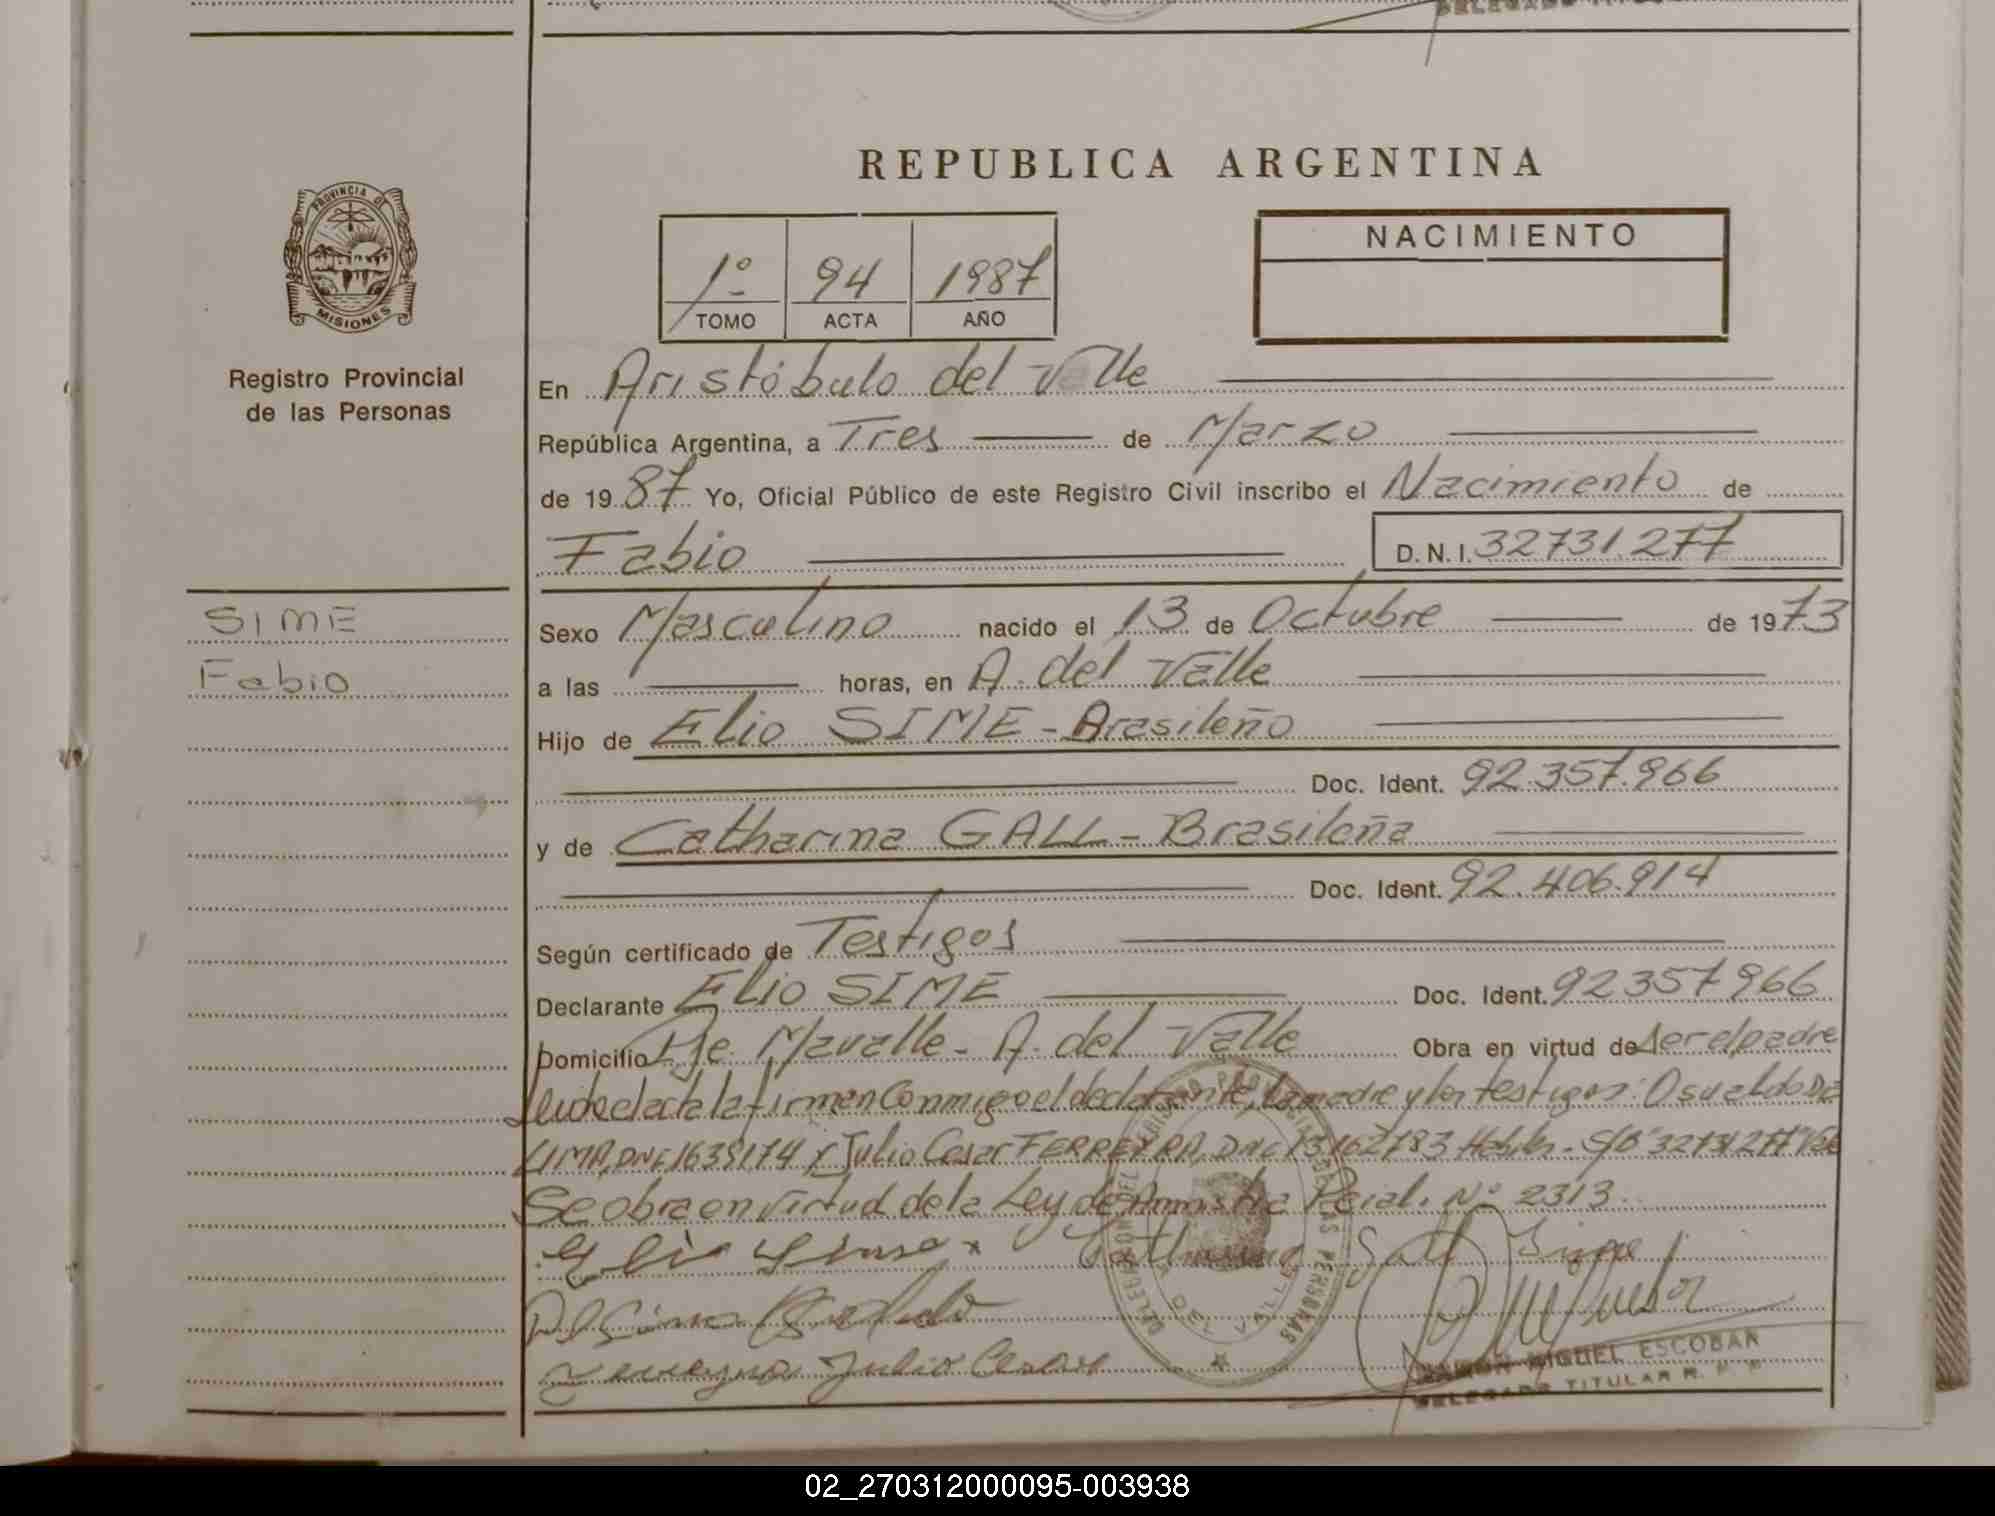 REPUBLICA ARGENTINA
PROVINCIA DE
MISIONES
Registro Provincial
de las Personas
1º 94 1987
TOMO ACTA AÑO
NACIMIENTO
En Aristóbulo del Valle
República Argentina, a Tres de Marzo
de 1987 Yo, Oficial Público de este Registro Civil inscribo el Nacimiento de
Fabio D.N.I. 32731.277
SIME
Fabio
Sexo Masculino nacido el 13 de Octubre de 1973
a las horas, en A. del Valle
Hijo de Elio SIME - Brasileño
Doc. Ident. 92.357.966
y de Catharina GALL - Brasileña
Doc. Ident. 92.406.914
Según certificado de Testigos
Declarante Elio SIME Doc. Ident. 92357966
Domicilio Pje. Mavalle - A. del Valle Obra en virtud de ser el padre
Leida el acta la firman conmigo el declarante, la madre y los testigos: Osvaldo DE
LIMA, DNI 1639174 y Julio Cesar FERREYRA, DNI 13162783 Hábiles - S/B "32731277" Vale
Se obra en virtud de la Ley de Amnistia Pcial. Nº 2313.
Catharina Gall Sime
Julio Cesar
DELEGACION DEL REGISTRO PROVINCIAL DE LAS PERSONAS
DEL VALLE
RAMON MIGUEL ESCOBAR
DELEGADO TITULAR R. P. P.
02_270312000095-003938